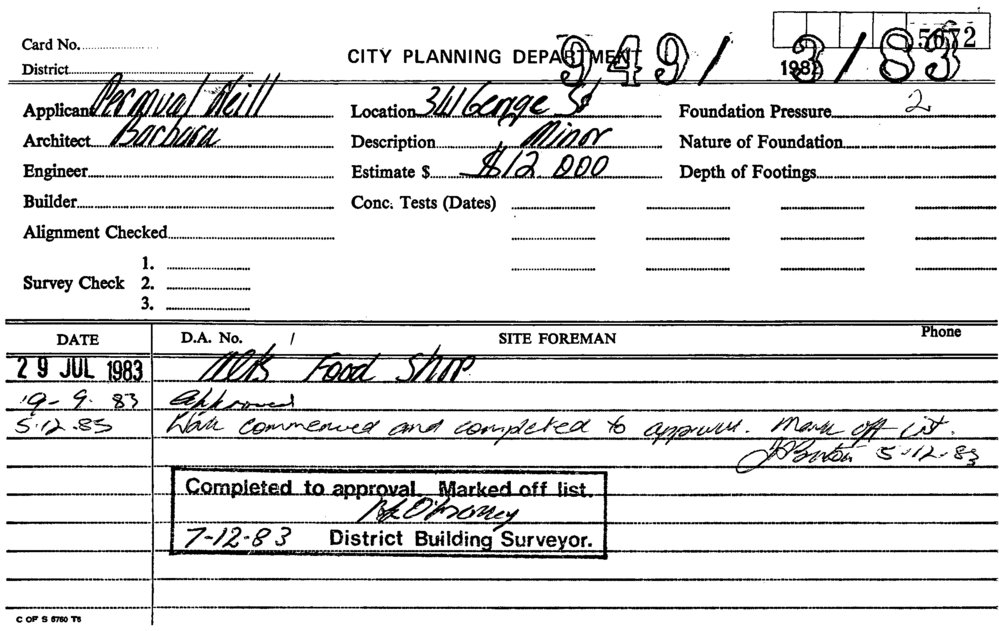 Card No.
5672
CITY PLANNING DEPARTMENT
949/3/83
198
District
Applicant Neill
Location George St
Foundation Pressure 2
Architect Barbara
Description Minor
Nature of Foundation
Engineer
Estimate $ $12 000
Depth of Footings
Builder
Conc. Tests (Dates)
Alignment Checked
1.
Survey Check 2.
3.
DATE D.A. No. / SITE FOREMAN Phone
29 JUL 1983 Food Shop
19-9.83 Approved
5.12.83 Work commenced and completed to approval. Mark off list.
5.12.83
Completed to approval. Marked off list.
7-12-83 District Building Surveyor.
C OF S 6760 T6